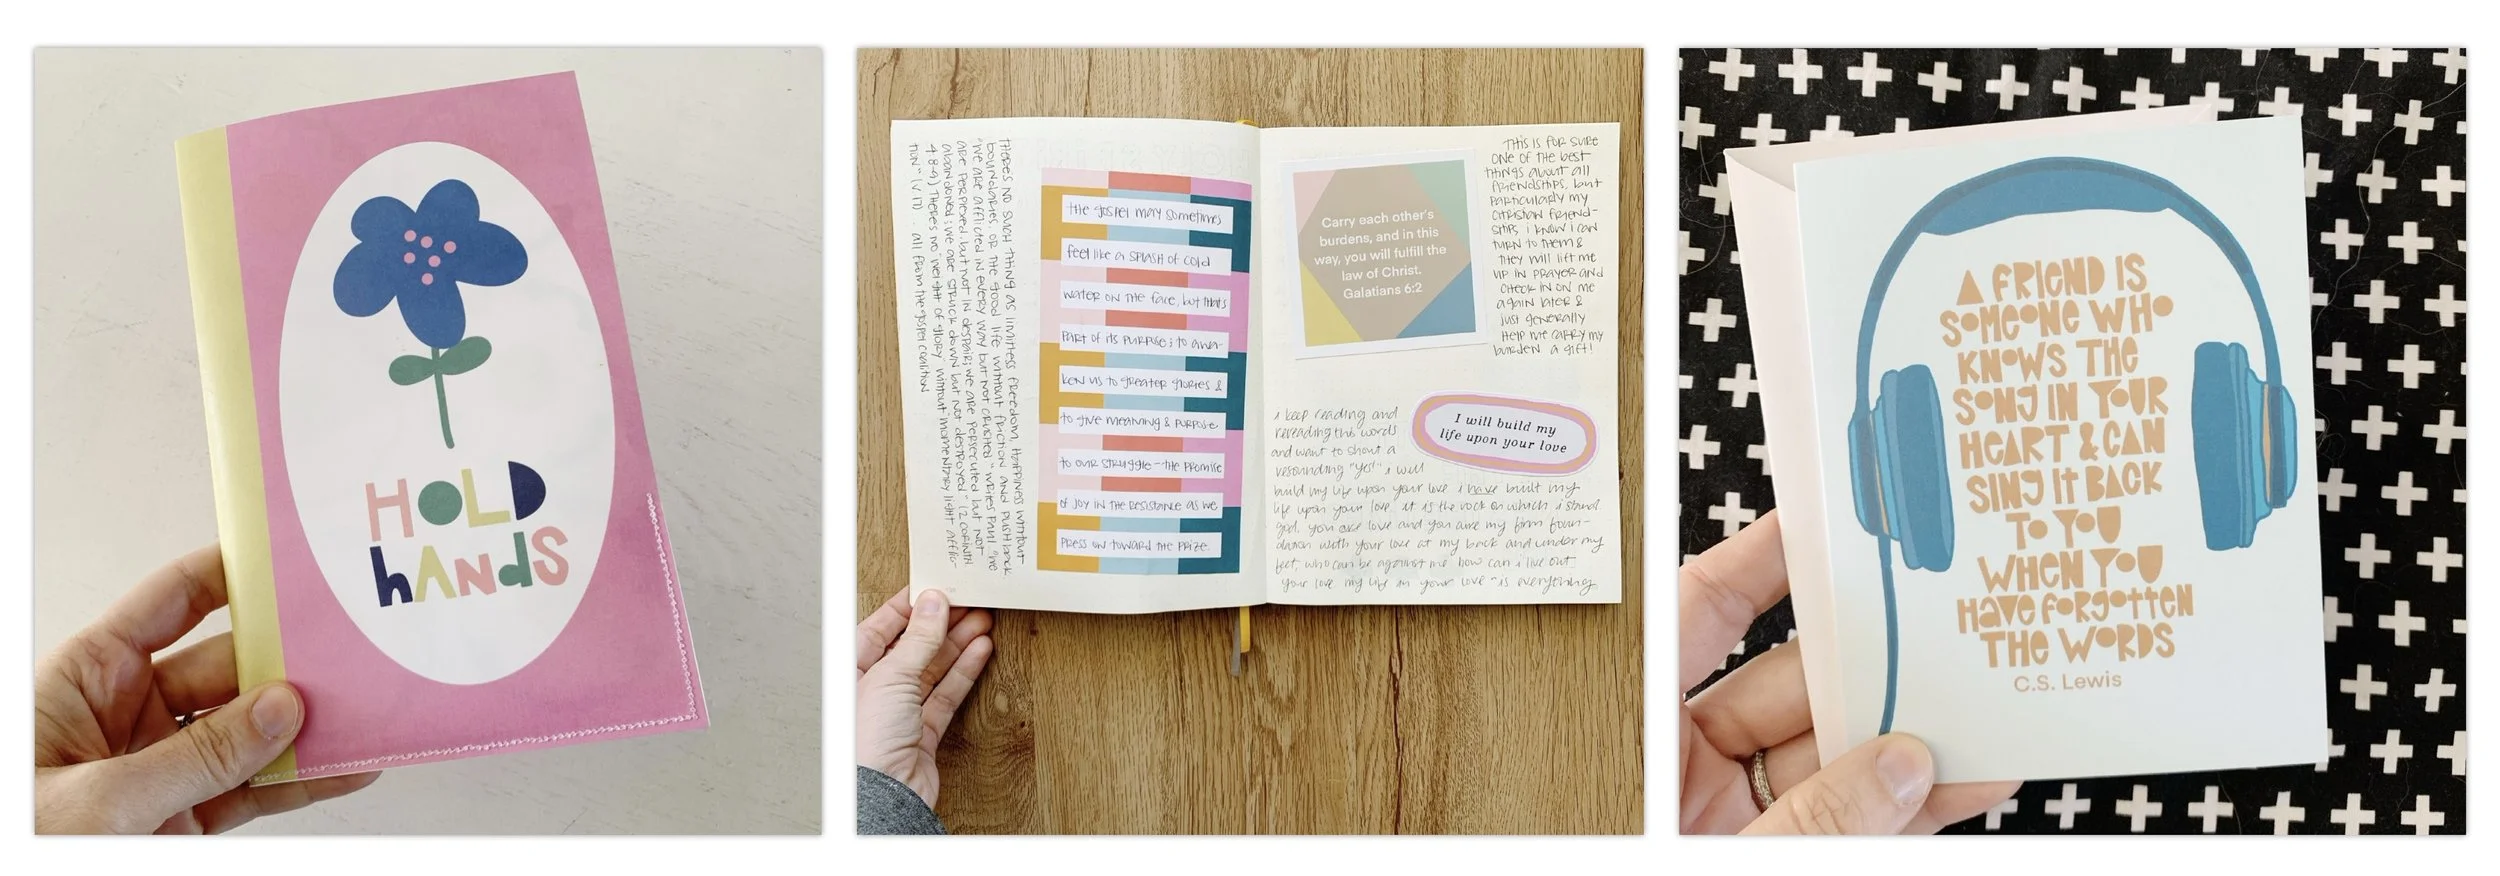 HOLD
hANdS
THERE'S NO SUCH THING AS LIMITLESS FREEDOM, HAPPINESS WITHOUT
boundaries, OR THE good life without friction and pushback.
"we are afflicted in every way but not crushed" writes Paul "we
are perplexed, but not in despair; we are persecuted but not
abandoned; we are struck down but not destroyed" (2 corinth
4:8-9) There's no "weight of glory" without "momentary light afflic-
tion" (v 17). all from the gospel coalition
the gospel may sometimes
feel like a splash of cold
water on the face, but that's
part of its purpose; to awa-
ken us to greater glories &
to give meaning & purpose
to our struggle — the promise
of joy in the resistance as we
press on toward the prize.
Carry each other's
burdens, and in this
way, you will fulfill the
law of Christ.
Galatians 6:2
This is for sure
one of the best
things about all
friendships, but
particularly my
christian friend-
ships. i know i can
turn to them &
they will lift me
up in prayer and
check in on me
again later &
just generally
help me carry my
burden. a gift!
I will build my
life upon your love
i keep reading and
rereading this words
and want to shout a
resounding "yes!" i will
build my life upon your love. i have built my
life upon your love. it is the rock on which i stand.
god, you are love and you are my firm foun-
dation. with your love at my back and under my
feet, who can be against me. how can i live out
your love. my life in your love is everything
A FRIEND IS
SOMEONE WHO
KNOWS THE
SONG IN YOUR
HEART & CAN
SING IT BACK
TO YOU
WHEN YOU
HAVE FORGOTTEN
THE WORDS
C.S. Lewis